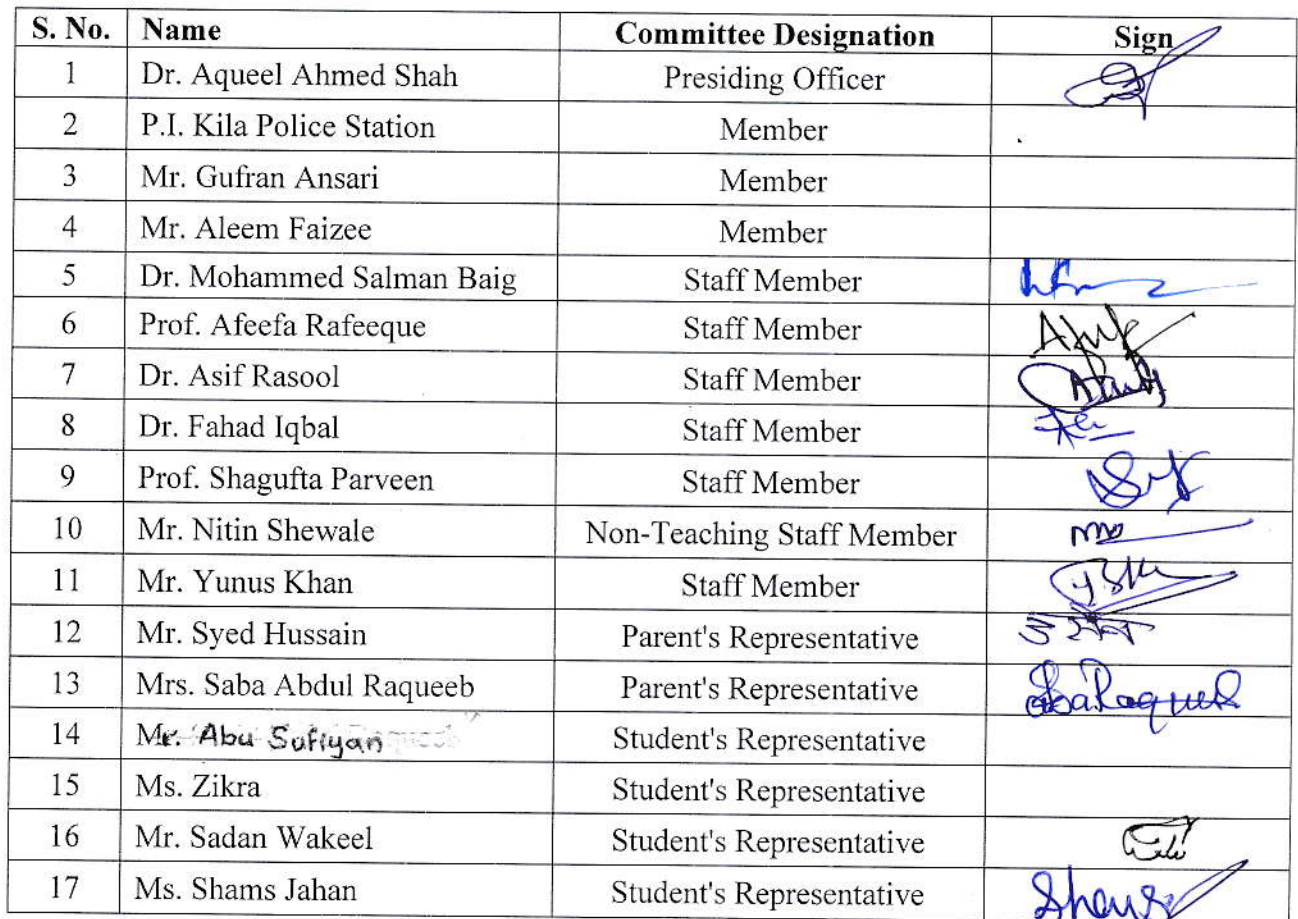 S. No. Name Committee Designation Sign
1 Dr. Aqueel Ahmed Shah Presiding Officer
2 P.I. Kila Police Station Member
3 Mr. Gufran Ansari Member
4 Mr. Aleem Faizee Member
5 Dr. Mohammed Salman Baig Staff Member
6 Prof. Afeefa Rafeeque Staff Member
7 Dr. Asif Rasool Staff Member
8 Dr. Fahad Iqbal Staff Member
9 Prof. Shagufta Parveen Staff Member
10 Mr. Nitin Shewale Non-Teaching Staff Member
11 Mr. Yunus Khan Staff Member
12 Mr. Syed Hussain Parent's Representative
13 Mrs. Saba Abdul Raqueeb Parent's Representative
14 Mr. Abu Sufiyan Student's Representative
15 Ms. Zikra Student's Representative
16 Mr. Sadan Wakeel Student's Representative
17 Ms. Shams Jahan Student's Representative